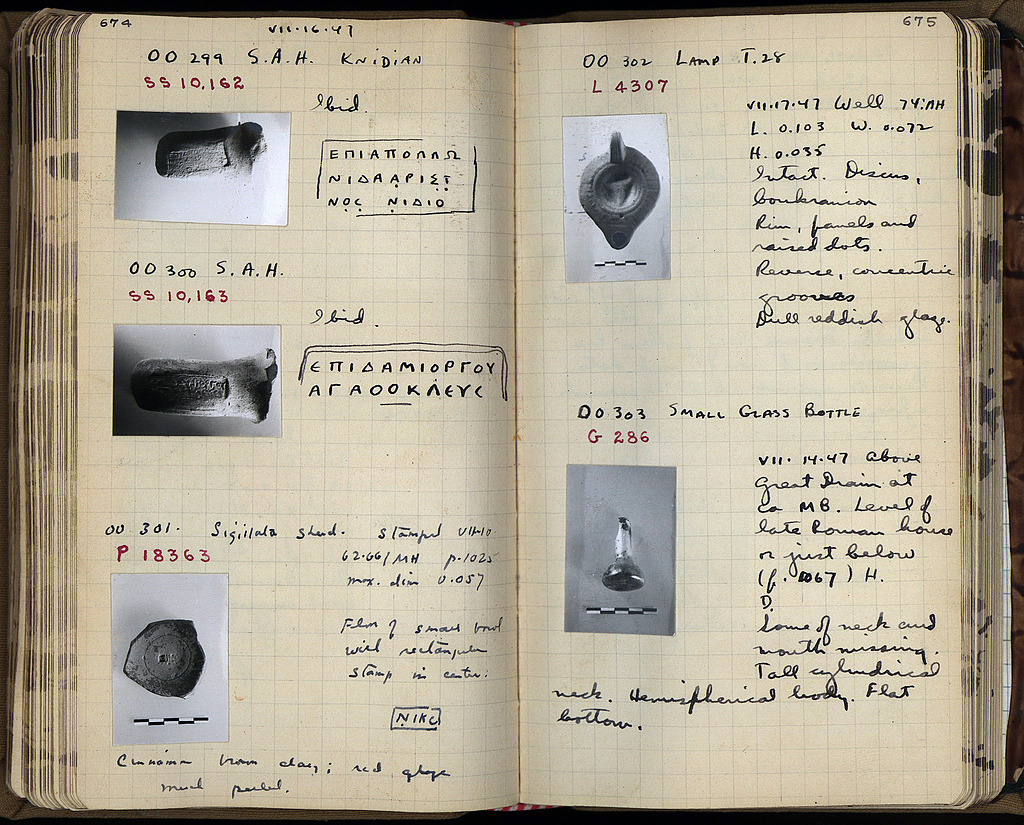 674
VII·16·47
OO 299 S.A.H. KNIDIAN
SS 10,162
Ibid.
ΕΠΙΑΠΟΛΛΩ
ΝΙΔΑΑΡΙΣΤ
ΝΟϹ ΝΙΔΙΟ
OO 300 S.A.H.
SS 10,163
Ibid.
ΕΠΙΔΑΜΙΟΡΓΟΥ
ΑΓΑΘΟΚΛΕΥϹ
OO 301. Sigillata sherd. Stamped VII·10
P 18363
62·66/MH p. 1025
max. dim 0.057
Flor of small bowl
with rectangular
stamp in center:
ΝΙΚϹ
Cinnamon brown clay; red glaze
much peeled.
675
OO 302 LAMP T.28
L 4307
VII·17·47 Well 74:AH
L. 0.103 W. 0.072
H. 0.035
Intact. Discus,
boukranion
Rim, panels and
raised dots.
Reverse, concentric
grooves
Dull reddish glaze.
OO 303 SMALL GLASS BOTTLE
G 286
VII·14·47 Above
Great Drain at
ca MB. Level of
late Roman house
or just below
(p. 1067) H.
D.
Some of neck and
mouth missing.
Tall cylindrical
neck. Hemispherical body. Flat
bottom.